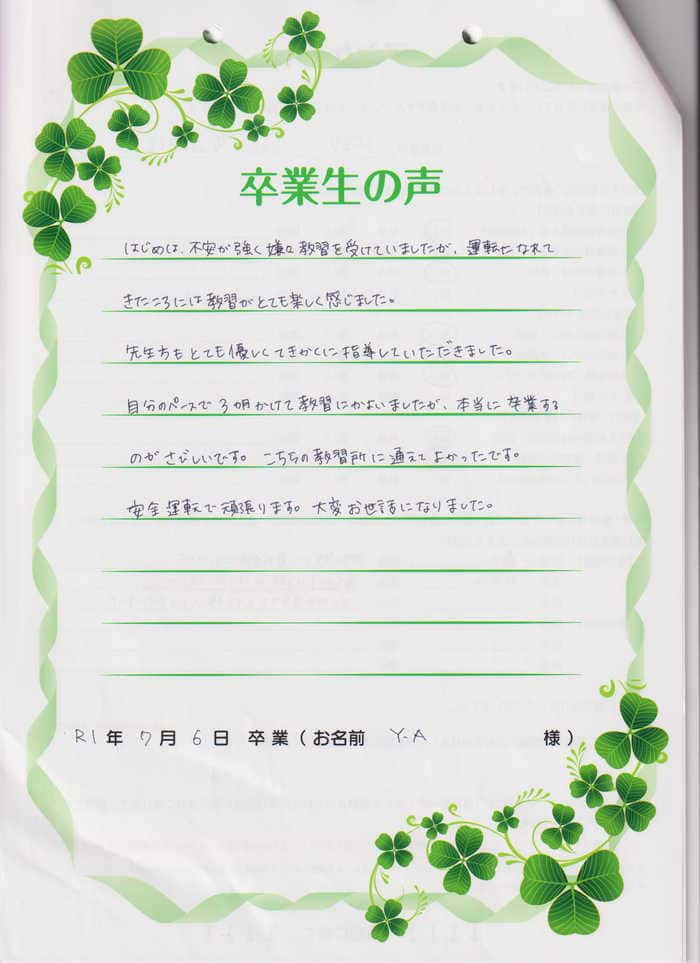 卒業生の声
はじめは、不安が強く嫌々教習を受けていましたが、運転になれて
きたころには教習がとても楽しく感じました。
先生方もとても優しくてきかくに指導していただきました。
自分のペースで3ヵ月かけて教習にかよいましたが、本当に卒業する
のがさびしいです。こちらの教習所に通えてよかったです。
安全運転で頑張ります。大変お世話になりました。
R1年 7月 6日 卒業(お名前 Y-A 様)